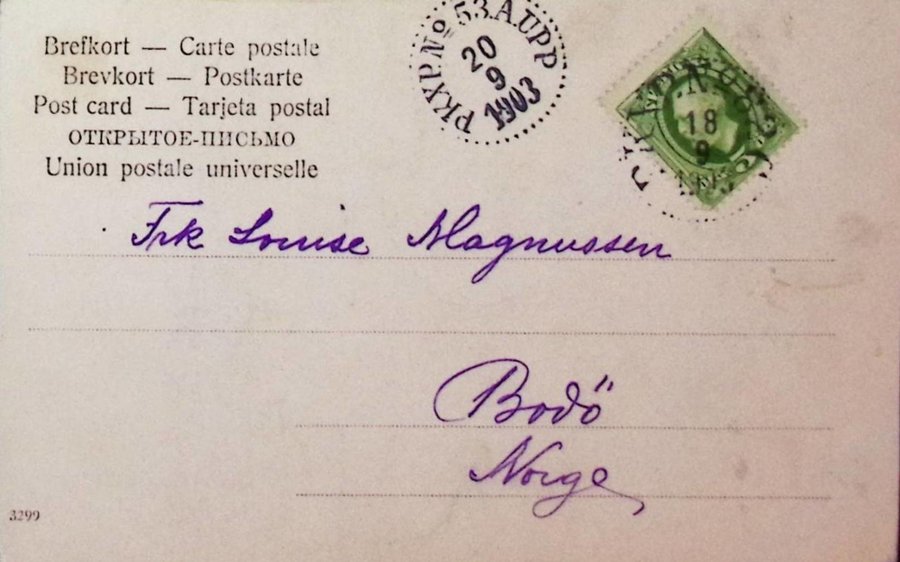 Brefkort — Carte postale
Brevkort — Postkarte
Post card — Tarjeta postal
ОТКРЫТОЕ-ПИСЬМО
Union postale universelle
PKXP. No 53. A. UPP
20
9
1903
18
9
Frk Louise Magnussen
Bodö
Norge
3299